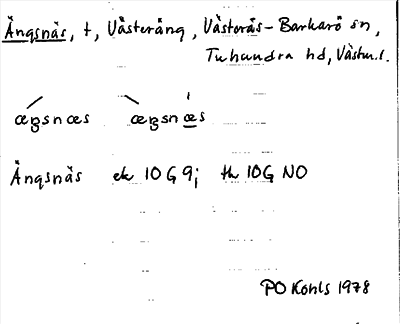 Ängsnäs, t, Västeräng, Västerås-Barkarö sn,
Tuhundra hd, Västm.l.
æŋsnæs æŋsnæs
Ängsnäs ek 10G 9i th 10G NO
PO Kohls 1978